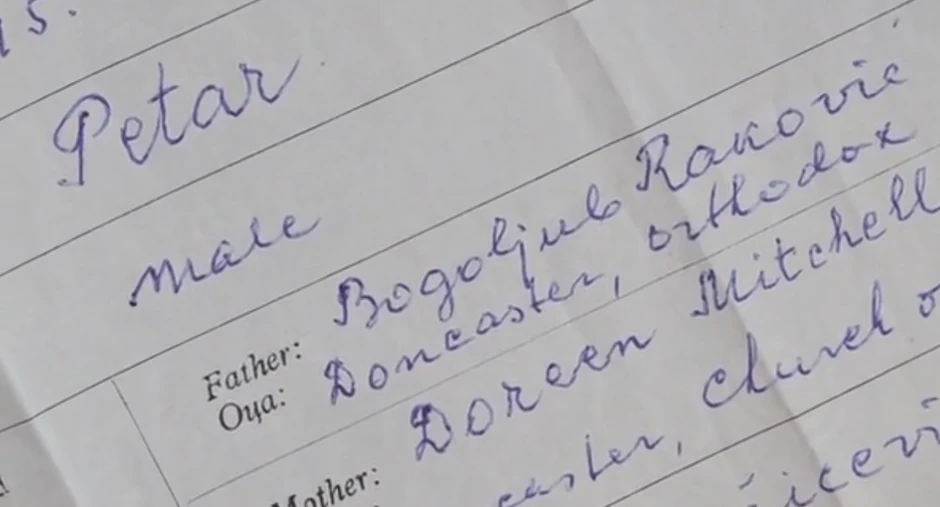 15.
Petar
male
Father: Bogoljub Raković
Оца: Doncaster, orthodox
Mother: Doreen Mitchell
caster, church o
ćicevi